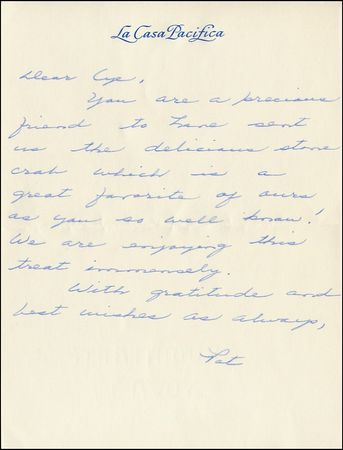 La Casa Pacifica
Dear Cye,
You are a precious
friend to have sent
us the delicious stone
crab which is a
great favorite of ours
as you so well know!
We are enjoying this
treat immensely.
With gratitude and
best wishes as always,
Pat